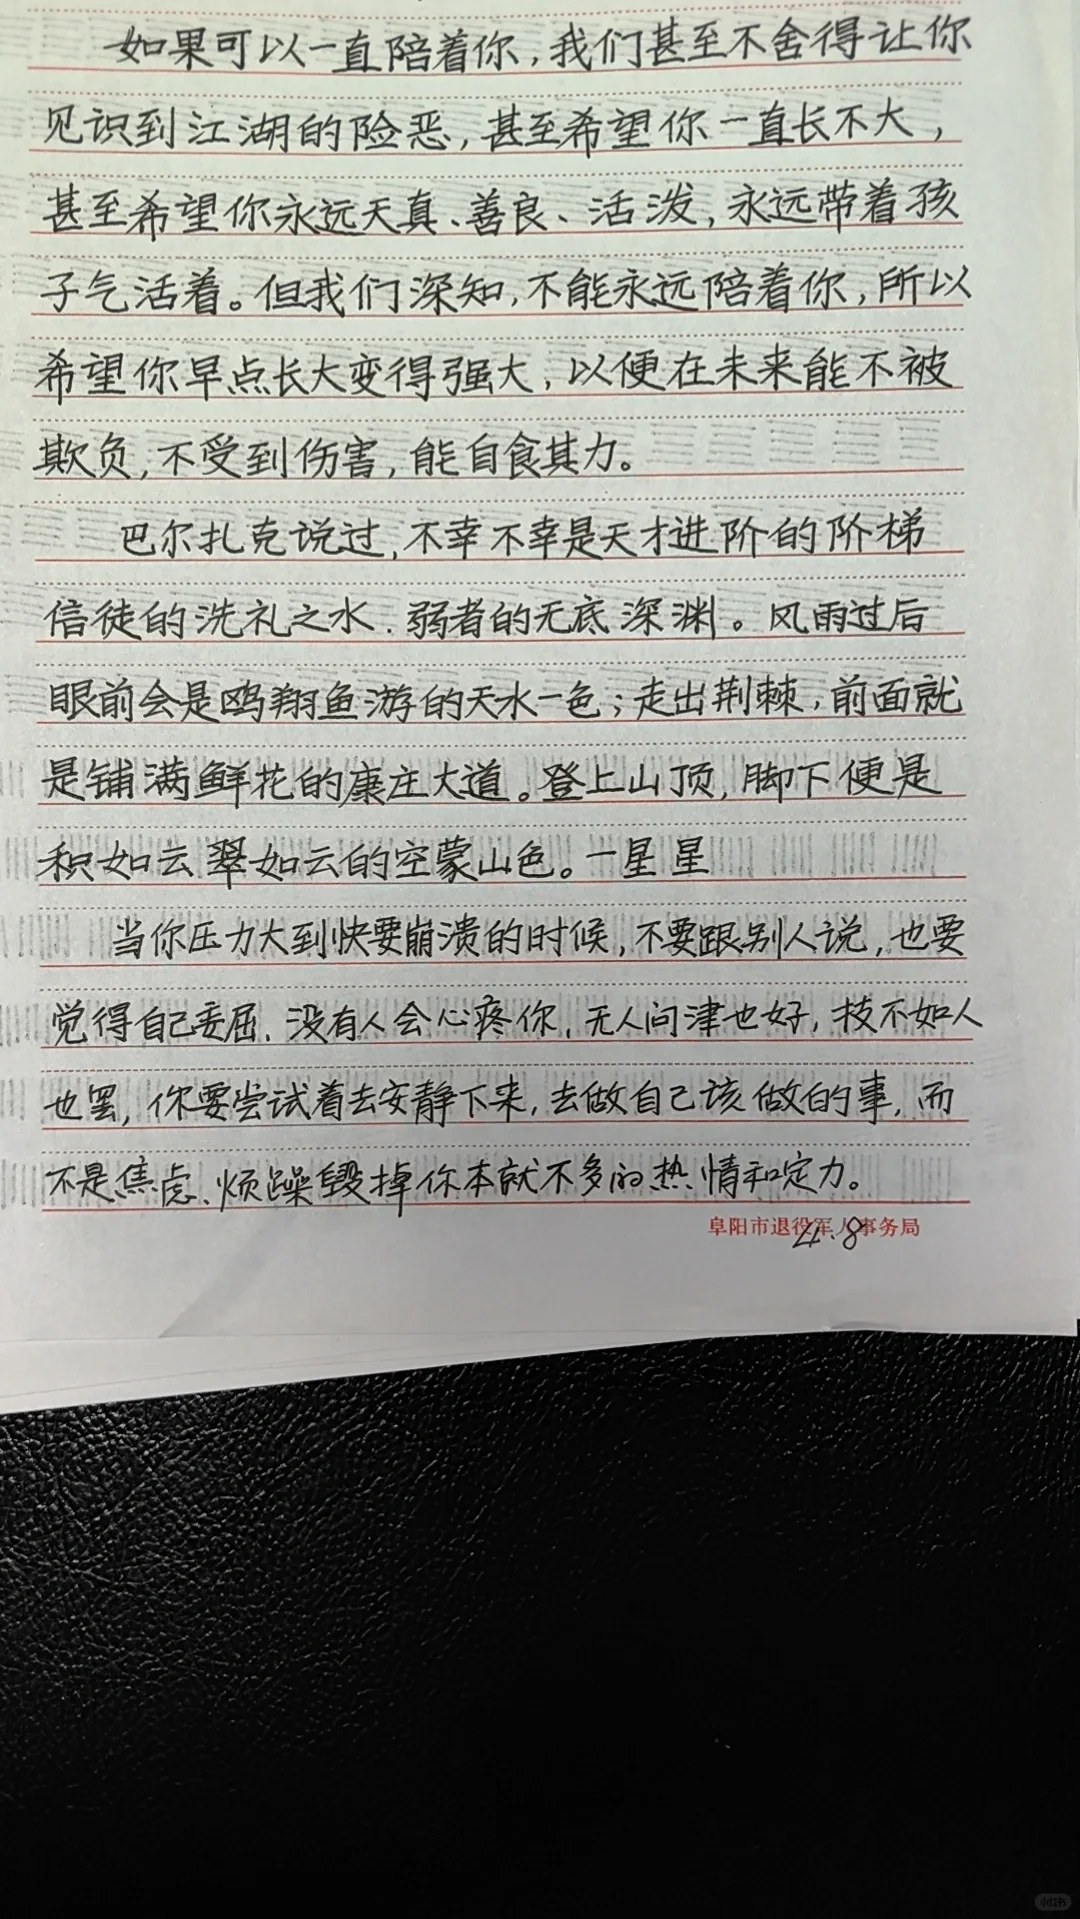 如果可以一直陪着你,我们甚至不舍得让你
见识到江湖的险恶,甚至希望你一直长不大,
甚至希望你永远天真、善良、活泼,永远带着孩
子气活着。但我们深知,不能永远陪着你,所以
希望你早点长大变得强大,以便在未来能不被
欺负,不受到伤害,能自食其力。
巴尔扎克说过,不幸不幸是天才进阶的阶梯
信徒的洗礼之水.弱者的无底深渊。风雨过后
眼前会是鸥翔鱼游的天水一色;走出荆棘,前面就
是铺满鲜花的康庄大道。登上山顶,脚下便是
积如云翠如云的空蒙山色。一星星
当你压力大到快要崩溃的时候,不要跟别人说,也要
觉得自己委屈.没有人会心疼你,无人问津也好,技不如人
也罢,你要尝试着去安静下来,去做自己该做的事,而
不是焦虑、烦躁毁掉你本就不多的热情和定力。
阜阳市退役军人事务局
4.8